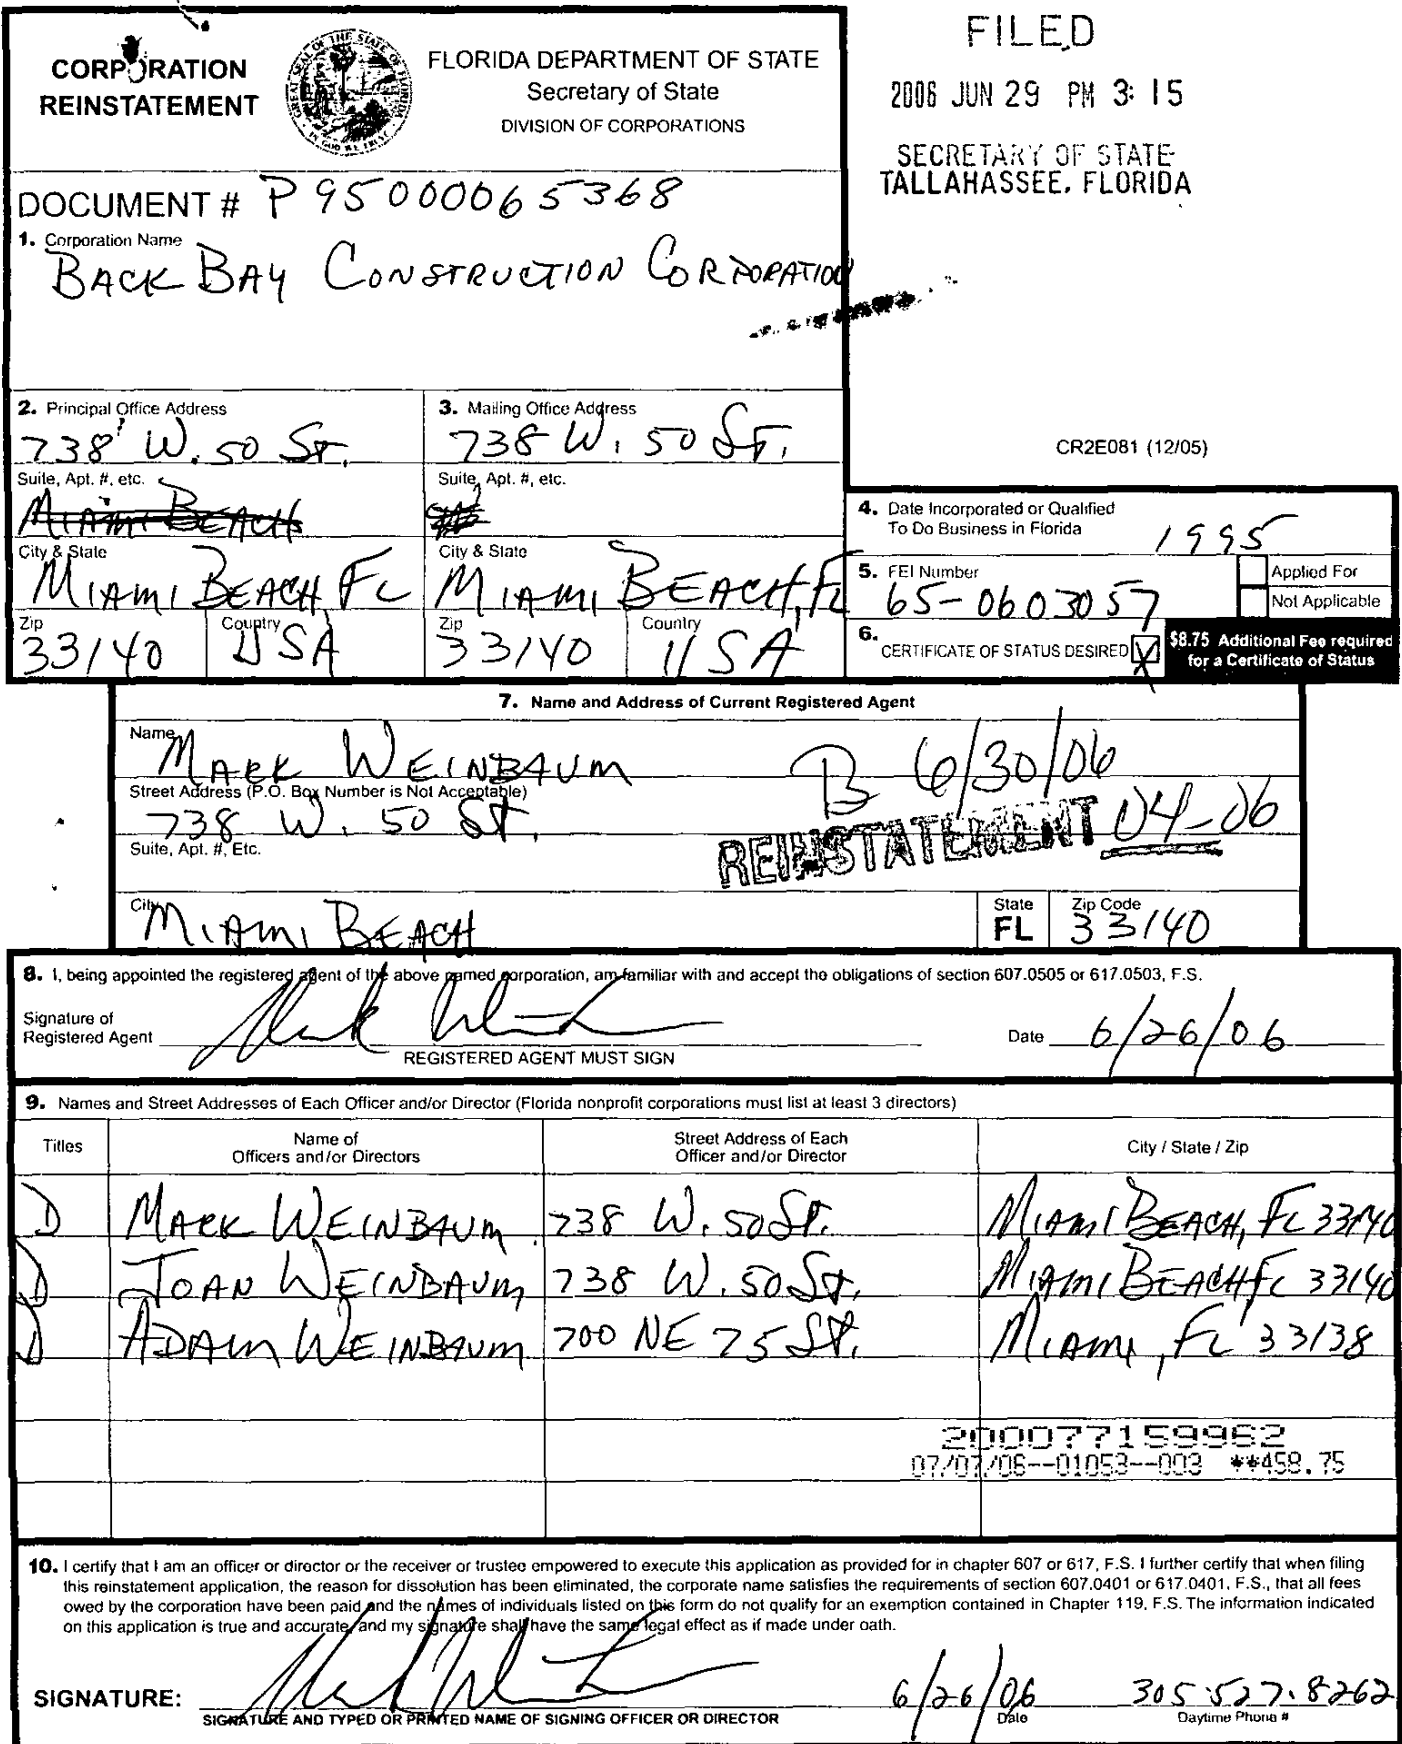 FILED
2006 JUN 29 PM 3:15
SECRETARY OF STATE
TALLAHASSEE, FLORIDA
CORPORATION
REINSTATEMENT
FLORIDA DEPARTMENT OF STATE
Secretary of State
DIVISION OF CORPORATIONS
DOCUMENT # P95000065368
1. Corporation Name
BACK BAY CONSTRUCTION CORPORATION
2. Principal Office Address
738 W. 50 St.
Suite, Apt. #, etc.
MIAMI BEACH
City & State
MIAMI BEACH, FL
Zip
33140
Country
USA
3. Mailing Office Address
738 W. 50 St.
Suite, Apt. #, etc.
City & State
MIAMI BEACH, FL
Zip
33140
Country
USA
CR2E081 (12/05)
4. Date Incorporated or Qualified
To Do Business in Florida
1995
5. FEI Number
65-0603057
Applied For
Not Applicable
6. CERTIFICATE OF STATUS DESIRED X
$8.75 Additional Fee required
for a Certificate of Status
7. Name and Address of Current Registered Agent
Name
MARK WEINBAUM
B 6/30/06
Street Address (P.O. Box Number is Not Acceptable)
738 W. 50 St.
REINSTATEMENT 04-06
Suite, Apt. #, Etc.
City
MIAMI BEACH
State
FL
Zip Code
33140
8. I, being appointed the registered agent of the above named corporation, am familiar with and accept the obligations of section 607.0505 or 617.0503, F.S.
Signature of
Registered Agent
REGISTERED AGENT MUST SIGN
Date 6/26/06
9. Names and Street Addresses of Each Officer and/or Director (Florida nonprofit corporations must list at least 3 directors)
Titles
Name of
Officers and/or Directors
Street Address of Each
Officer and/or Director
City / State / Zip
D MARK WEINBAUM 738 W. 50 St. MIAMI BEACH, FL 33140
D JOAN WEINBAUM 738 W. 50 St. MIAMI BEACH FL 33140
D ADAM WEINBAUM 700 NE 75 St. MIAMI, FL 33138
200077159962
07/07/06--01053--003 **458.75
10. I certify that I am an officer or director or the receiver or trustee empowered to execute this application as provided for in chapter 607 or 617, F.S. I further certify that when filing
this reinstatement application, the reason for dissolution has been eliminated, the corporate name satisfies the requirements of section 607.0401 or 617.0401, F.S., that all fees
owed by the corporation have been paid and the names of individuals listed on this form do not qualify for an exemption contained in Chapter 119, F.S. The information indicated
on this application is true and accurate, and my signature shall have the same legal effect as if made under oath.
SIGNATURE:
6/26/06
305.527.8262
SIGNATURE AND TYPED OR PRINTED NAME OF SIGNING OFFICER OR DIRECTOR
Date
Daytime Phone #